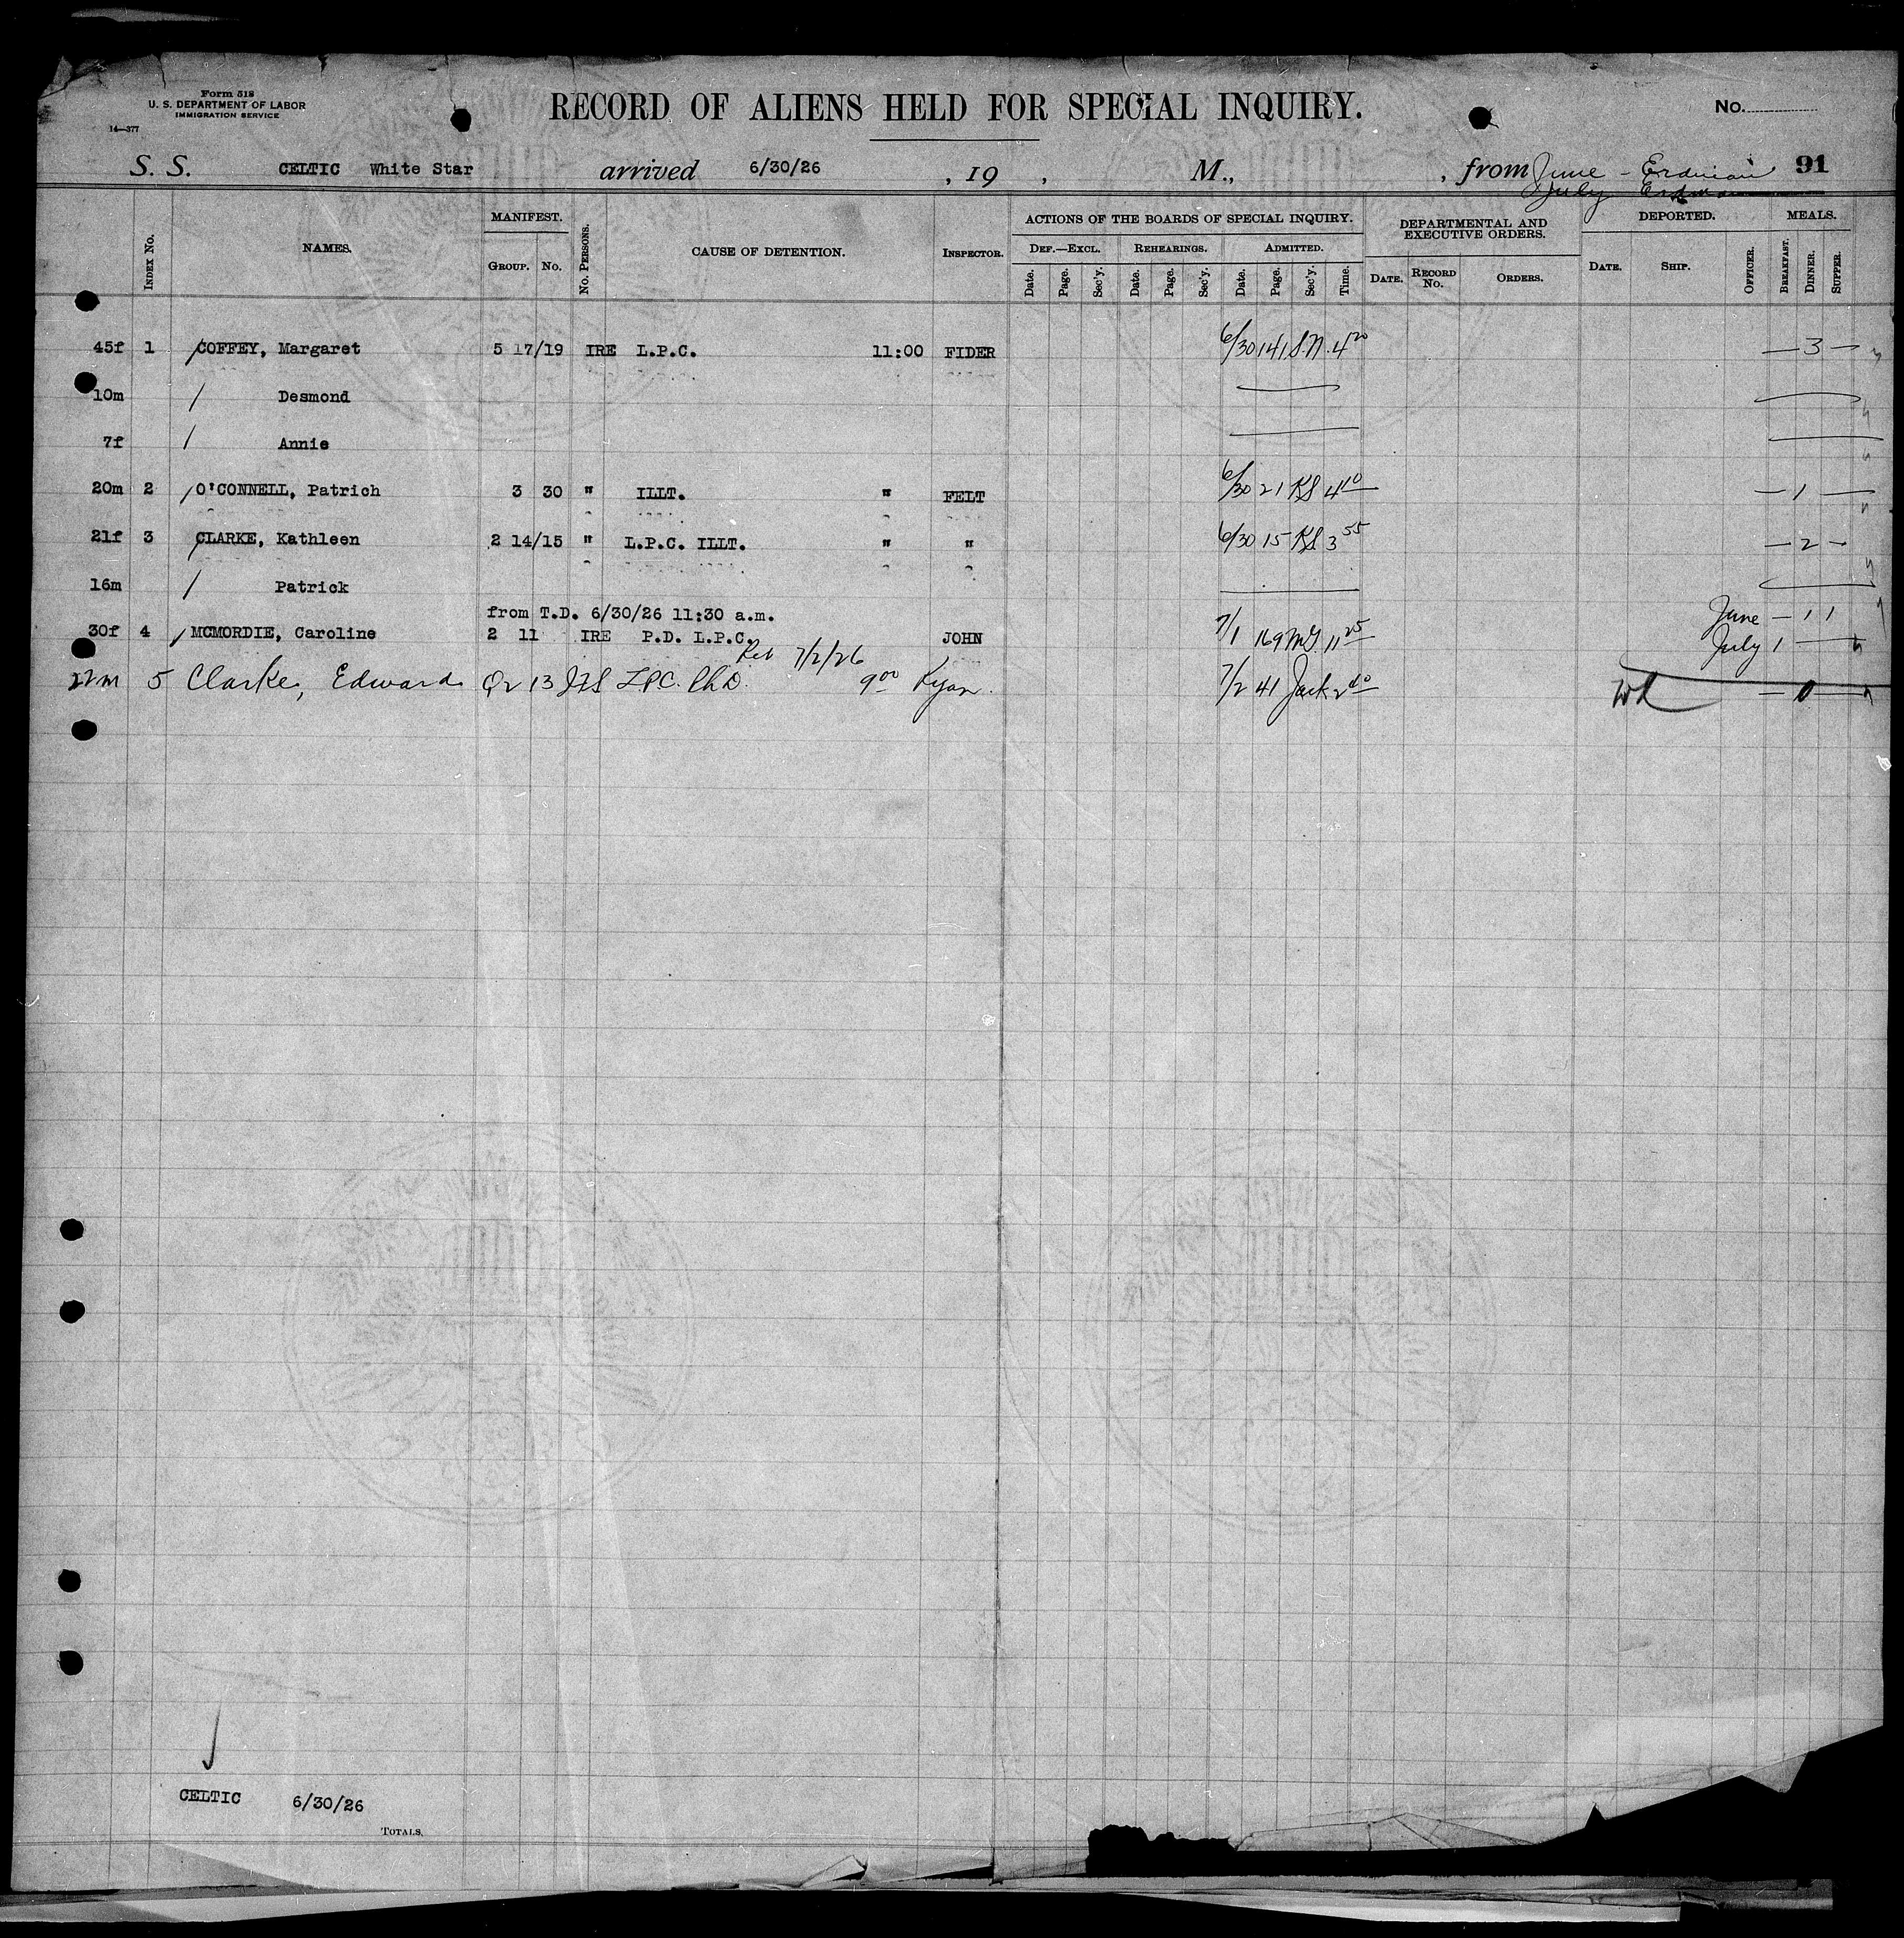 Form 518
U. S. DEPARTMENT OF LABOR
IMMIGRATION SERVICE
14—377
RECORD OF ALIENS HELD FOR SPECIAL INQUIRY.
No.
S. S. CELTIC White Star arrived 6/30/26 , 19 , M., , from June - Erdman 91
July Erdman
INDEX No.
NAMES.
MANIFEST.
GROUP. No.
No. PERSONS.
CAUSE OF DETENTION.
INSPECTOR.
ACTIONS OF THE BOARDS OF SPECIAL INQUIRY.
DEF.—EXCL. REHEARINGS. ADMITTED.
Date. Page. Sec'y. Date. Page. Sec'y. Date. Page. Sec'y. Time.
DEPARTMENTAL AND EXECUTIVE ORDERS.
DATE. RECORD No. ORDERS.
DEPORTED.
DATE. SHIP. OFFICER.
MEALS.
BREAKFAST. DINNER. SUPPER.
45f 1 COFFEY, Margaret 5 17/19 IRE L.P.C. 11:00 FIDER 6/30 141 S.N. 4 20 — 3 —
10m Desmond
7f Annie
20m 2 O'CONNELL, Patrich 3 30 " ILLT. " FELT 6/30 21 KS 4 10 — 1 —
21f 3 CLARKE, Kathleen 2 14/15 " L.P.C. ILLT. " " 6/30 15 KS 3 55 — 2 —
16m Patrick
from T.D. 6/30/26 11:30 a.m. June — 1 1
30f 4 MCMORDIE, Caroline 2 11 IRE P.D. L.P.C. JOHN 7/1 169 MG 11 25 July 1 —
7/2/26
22m 5 Clarke, Edward Q2 13 LPC. Ph.D. 9 00 Ryan. 7/2 41 Jack 2 40 — 0 —
CELTIC 6/30/26
TOTALS.